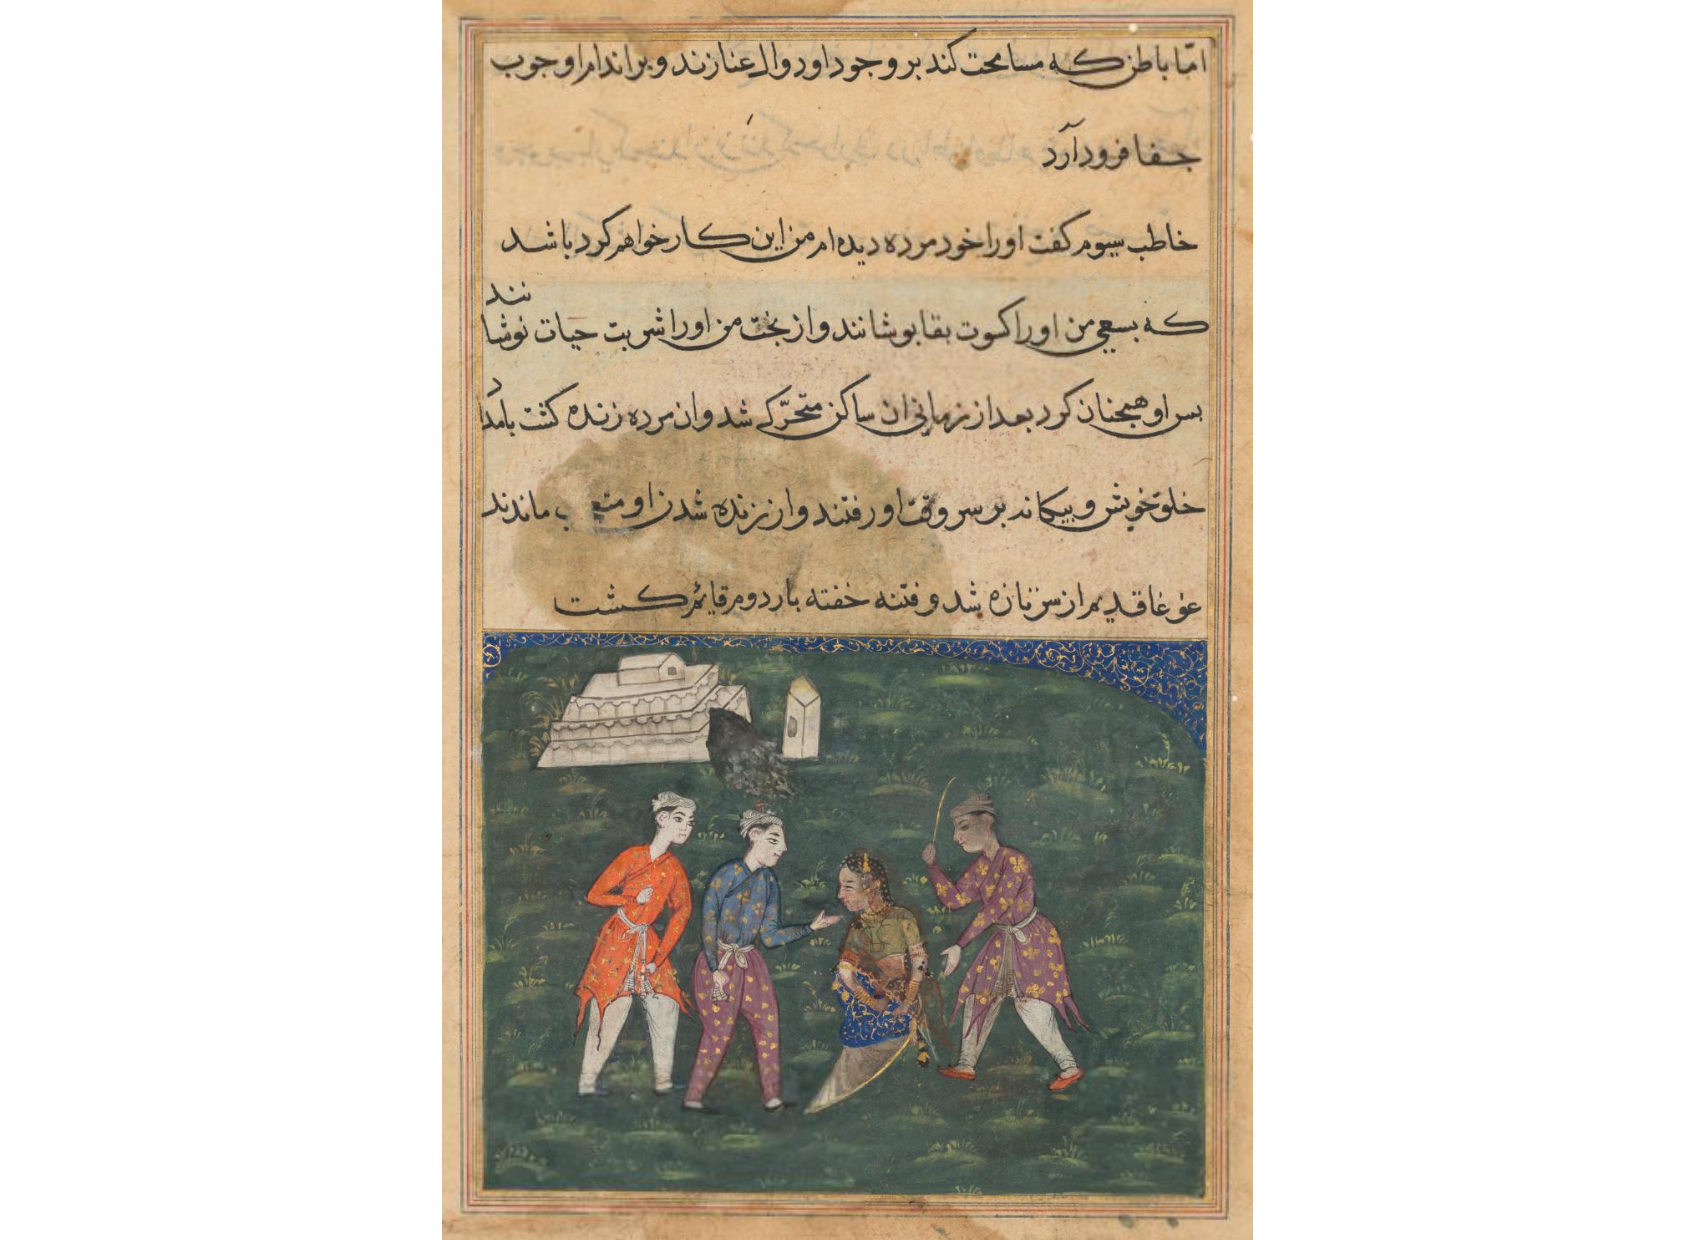 امّا باطن که مسامحت کند بر وجود او دوال عنا زند و بر اندام او جوب
جفا فرود آرد
خاطب سیوم کفت او را خود مرده دیده ام من این کار خواهم کرد باشد
که بسعی من او را کسوت بقا بوشانند و از بخت من او را شربت حیات نوشانند
بس او همجنان کرد بعد از زمانی ان ساکن متحرّک شد و ان مرده زنده کشت بامداد
خلق خویش و بیکانه بر سر وقت او رفتند و از زنده شدن او متعجب ماندند
غوغا قدیم از سر تازه شد و فتنه خفته بار دوم قایم کشت